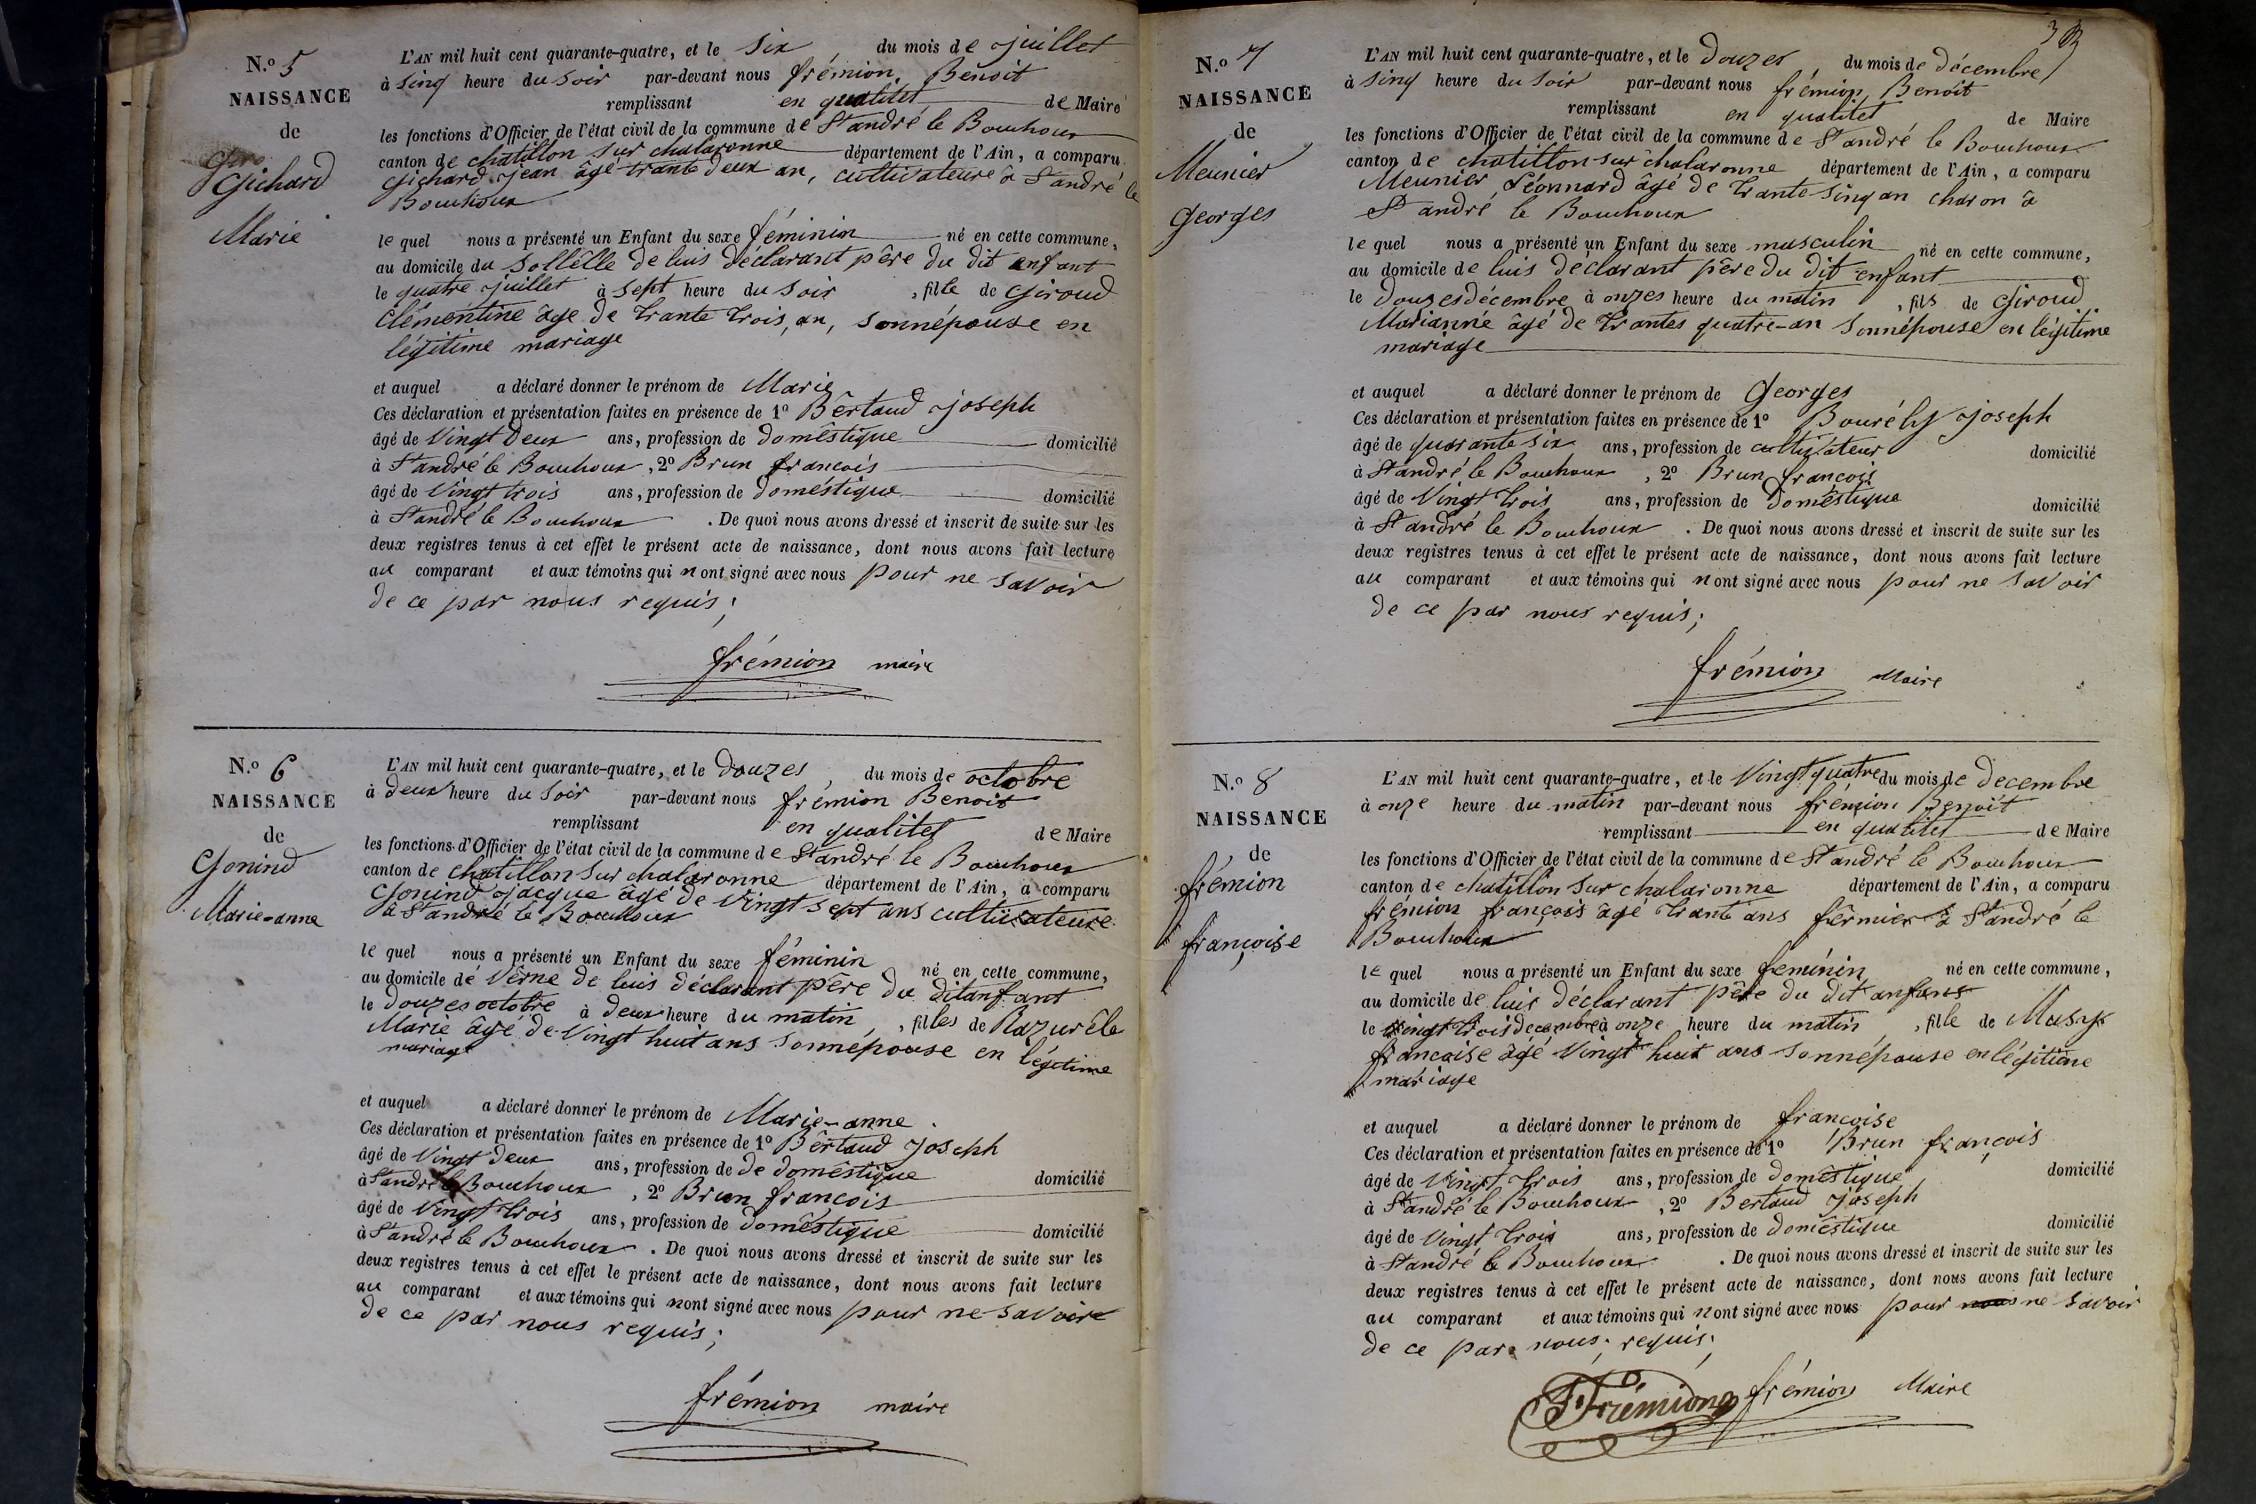 N.o 5
NAISSANCE
de
Gichard
Marie
L'AN mil huit cent quarante-quatre, et le Six, du mois de juillet
à sinq heure du soir par-devant nous frémion, Benoit
remplissant en qualitet de Maire
les fonctions d'Officier de l'état civil de la commune de St andré le Bouchoux
canton de chatillon sur chalaronne département de l'Ain, a comparu
Gichard jean âgé trante deux an, cultivateure a St andré le
Bouchoux
le quel nous a présenté un Enfant du sexe féminin né en cette commune,
au domicile du Sollêlle de luis déclarant père du dit anfant
le quatre juillet à sept heure du soir, fille de Giroud
Clémentine âge de trante trois, an, sonnépouse en
légitime mariage
et auquel a déclaré donner le prénom de Marie
Ces déclaration et présentation faites en présence de 1o Bêrtaud joseph
âgé de Vingt deux ans, profession de domêstique domicilié
à St andré le Bouchoux, 2o Brun francois
âgé de Vingt trois ans, profession de doméstique domicilié
à St andré le Bouchoux. De quoi nous avons dressé et inscrit de suite sur les
deux registres tenus à cet effet le présent acte de naissance, dont nous avons fait lecture
au comparant et aux témoins qui n ont signé avec nous pour ne savoir
de ce par nous requis;
frémion maire
N.o 6
NAISSANCE
de
Gonind
Marie-anne
L'AN mil huit cent quarante-quatre, et le douzes, du mois de octobre
à deux heure du soir par-devant nous frémion Benoit
remplissant en qualitet de Maire
les fonctions d'Officier de l'état civil de la commune de St andré le Bouchoux
canton de chatillon sur chalaronne département de l'Ain, a comparu
Gonind jacque âgé de vingt sept ans cultivateure
a St andré le Bouchoux
le quel nous a présenté un Enfant du sexe féminin né en cette commune,
au domicile de Vêrne de luis déclarant père du ditanfant
le douzes octobre à deux heure du matin, filles de Razurêle
Marie âgé de Vingt huit ans sonnépouse en légitime
mariage
et auquel a déclaré donner le prénom de Marie-anne
Ces déclaration et présentation faites en présence de 1o Bêrtaud joseph
âgé de Vingt deux ans, profession de de domêstique domicilié
à St andré le Bouchoux, 2o Brun françois
âgé de Vingt trois ans, profession de domêstique domicilié
à St andré le Bouchoux. De quoi nous avons dressé et inscrit de suite sur les
deux registres tenus à cet effet le présent acte de naissance, dont nous avons fait lecture
au comparant et aux témoins qui nont signé avec nous pour ne savoire
de ce par nous requis;
frémion maire
N.o 7
NAISSANCE
de
Meunier
Georges
L'AN mil huit cent quarante-quatre, et le douzes, du mois de décembre
à sinq heure du soir par-devant nous frémion, Benoit
remplissant en qualitet de Maire
les fonctions d'Officier de l'état civil de la commune de St andré le Bouchoux
canton de chatillon sur chalaronne département de l'Ain, a comparu
Meunier, Léonnard âgé de trante sinq an charon a
St andré le Bouchoux
le quel nous a présenté un Enfant du sexe masculin né en cette commune,
au domicile de luis déclarant père du dit enfant
le douzes décembre à onzes heure du matin, fils de Giroud
Marianne âgé de trantes quatre-an sonnépouse en légitime
mariage
et auquel a déclaré donner le prénom de Georges
Ces déclaration et présentation faites en présence de 1o Bourély joseph
âgé de quarante six ans, profession de cultivateur domicilié
à St andré le Bouchoux, 2o Brun françois
âgé de Vingt trois ans, profession de domêstique domicilié
à St andré le Bouchoux. De quoi nous avons dressé et inscrit de suite sur les
deux registres tenus à cet effet le présent acte de naissance, dont nous avons fait lecture
au comparant et aux témoins qui n ont signé avec nous pour ne savoir
de ce par nous requis;
frémion Maire
N.o 8
NAISSANCE
de
frémion
françoise
L'AN mil huit cent quarante-quatre, et le Vingt quatre du mois de decembre
à onze heure du matin par-devant nous frémion Benoit
remplissant en qualitet de Maire
les fonctions d'Officier de l'état civil de la commune de St andré le Bouchoux
canton de chatillon sur chalaronne département de l'Ain, a comparu
frémion françois âgé trante ans fêrmier a St andré le
Bouchoux
le quel nous a présenté un Enfant du sexe feminin né en cette commune,
au domicile de luis déclarant père du dit anfans
le Vingt trois decembre à onze heure du matin, fille de Musy
francoise âgé Vingt huit ans sonnépouse en légitime
mariage
et auquel a déclaré donner le prénom de francoise
Ces déclaration et présentation faites en présence de 1o Brun françois
âgé de Vingt trois ans, profession de domêstique domicilié
à St andré le Bouchoux, 2o Bertaud joseph
âgé de Vingt trois ans, profession de domêstique domicilié
à St andré le Bouchoux. De quoi nous avons dressé et inscrit de suite sur les
deux registres tenus à cet effet le présent acte de naissance, dont nous avons fait lecture
au comparant et aux témoins qui n ont signé avec nous pour nous ne savoir
de ce par nous, requis;
Frémion frémion Maire